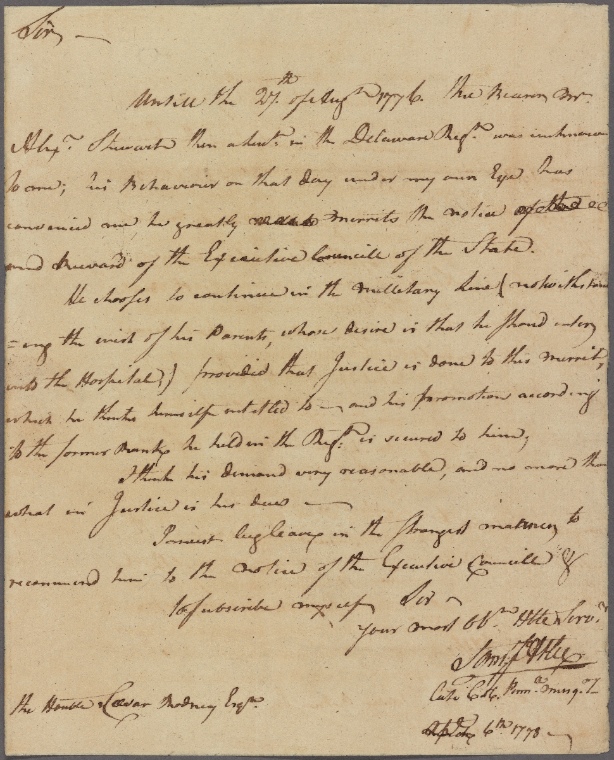 Sir,
Untill the 27th of Augst 1776. the Bearer Mr.
Alexr. Stewart then a Lieut. in the Delaware Regt. was unknown
to me; his Behaviour on that day under my own Eye has
convinced me, he greatly merrits the notice
and Reward of the Executive Councill of the State.
He chooses to continue in the millitary Line (notwithstand
=ing the wish of his Parents, whose desire is that he shoud enter
into the Hospital,) provided that Justice is done to his merrit,
which he thinks himself entitled to — and his promotion according
to the former Rank he held in the Regt. is secured to him,
I think his demand very reasonable, and no more than
what in Justice is his due —
I must beg leave in the strongest manner to
recommend him to the notice of the Executive Councille &
to subscribe myself Sir
your most Obt. Hble Servt.
Saml J Atlee
Late Col. Penna. Musqt.
6th 1778
the Honble Cæsar Rodney Esqr.